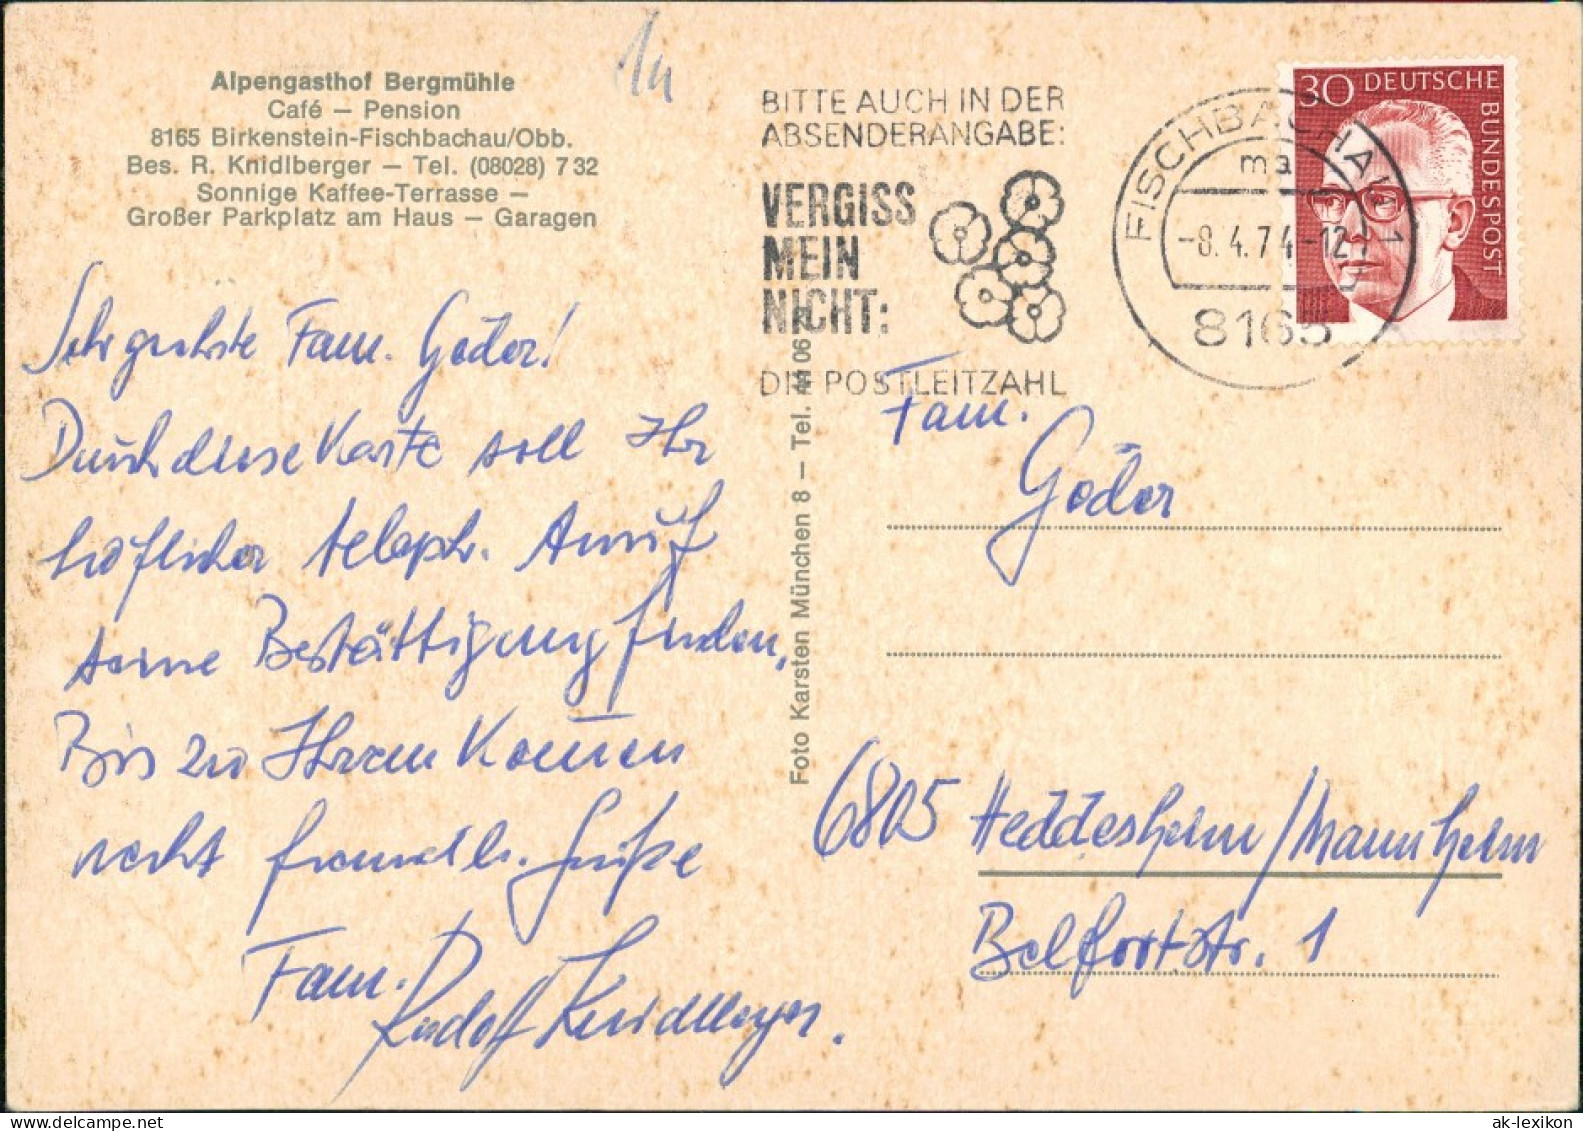 Alpengasthof Bergmühle
Café – Pension
8165 Birkenstein-Fischbachau/Obb.
Bes. R. Knidlberger – Tel. (08028) 7 32
Sonnige Kaffee-Terrasse –
Großer Parkplatz am Haus – Garagen
1a
Sehr geehrte Fam. Göder!
Durch diese Karte soll Ihr
höflicher teleph. Anruf
seine Bestättigung finden.
Bis zu Ihrem Kommen
recht freundlh. Grüße
Fam.
Rudolf Knidlberger.
Foto Karsten München 8 – Tel. 44 06
BITTE AUCH IN DER
ABSENDERANGABE:
VERGISS
MEIN
NICHT:
DIE POSTLEITZAHL
FISCHBACHAU 1
ma
-8.4.74-12
8165
30 DEUTSCHE
BUNDESPOST
Fam.
Göder
6805 Heddesheim/Mannheim
Belfortstr. 1
www.delcampe.net
ak-lexikon